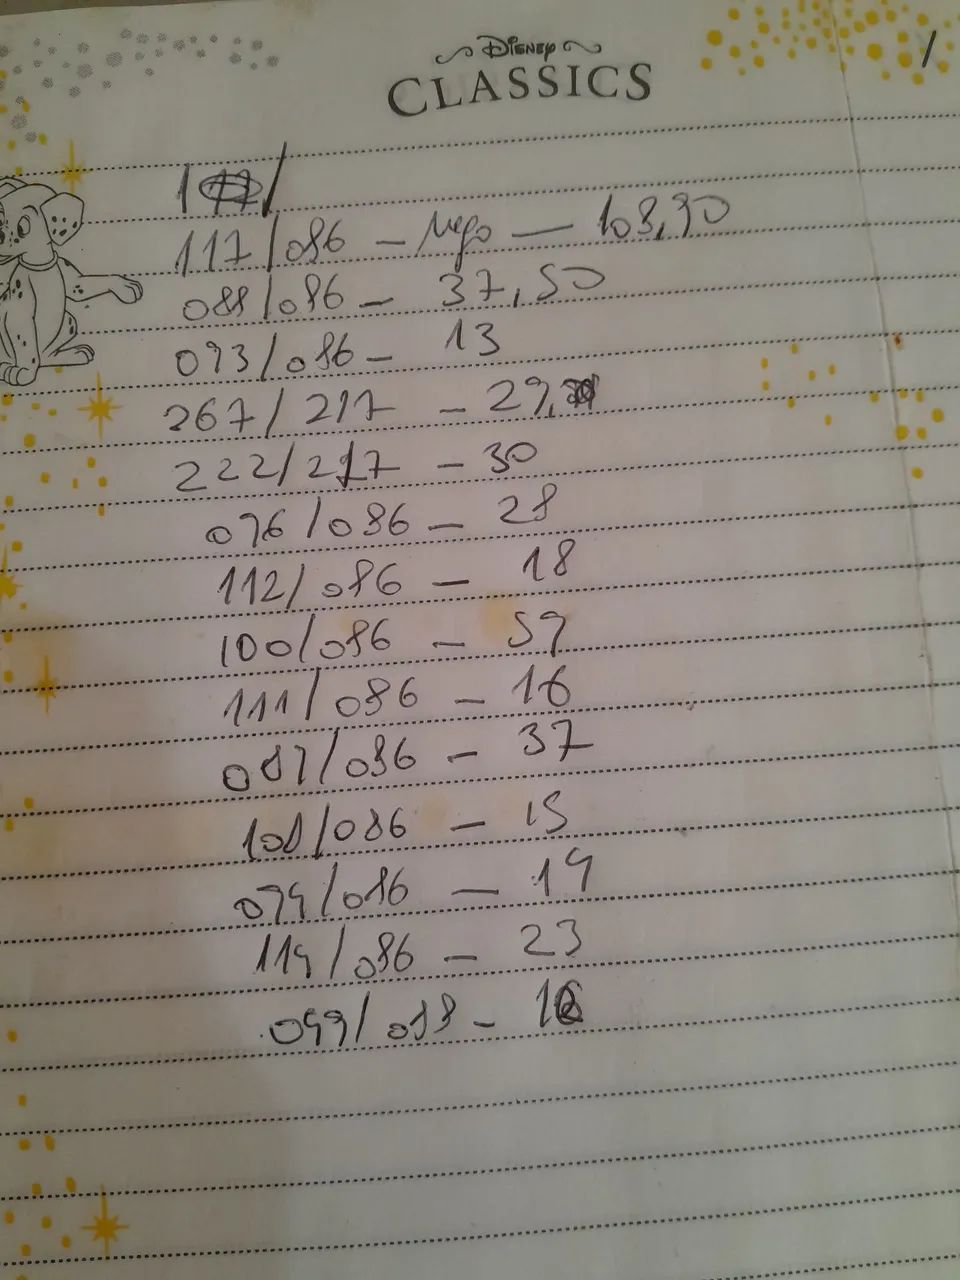 Disney
CLASSICS
1
117/086 - Mego - 103,90
088/086 - 37,50
093/086 - 13
267/217 - 29,
222/217 - 30
076/086 - 28
112/086 - 18
100/086 - 59
111/086 - 16
087/086 - 37
108/086 - 15
079/086 - 19
114/086 - 23
099/088 - 16